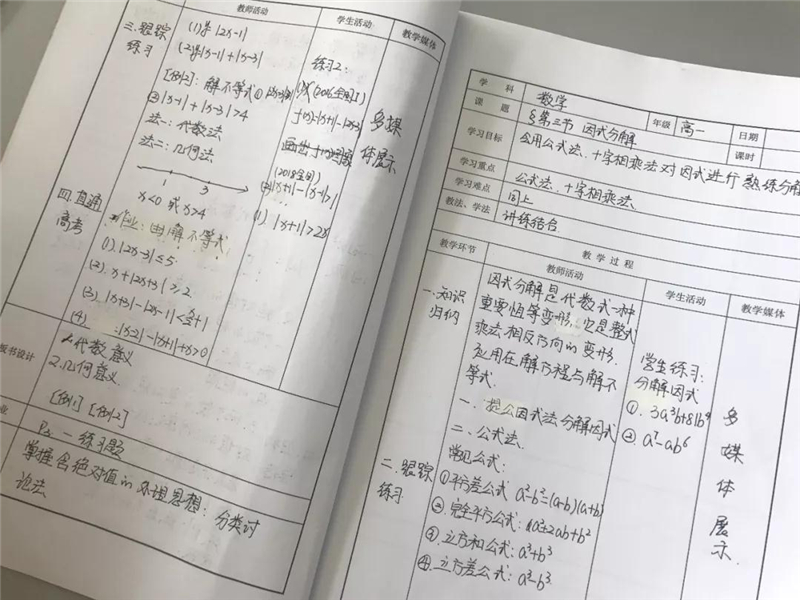 教师活动
学生活动
教学媒体
三.跟踪
练习
(1)求|2x-1|
(2)求|x-1|+|x-3|
[例2]:解不等式①
②|x-1|+|x-3|>4
法一:代数法
法二:几何法
1 3
x<0 或 x>4
四.直通
高考
作业:解不等式
(1).|2x-3|≤5
(2).
(3).
(4)
练习2:
(2016全国I)
画出
(2018全国)
(1). |x+1|>2x
多媒
体展示
板书设计
1.代数意义
2.几何意义
[例1] [例2]
业
P2 一练习题
掌握含绝对值的处理思想:分类讨
论法
学 科
数学
年级
高一
日期
课 题
§第三节 因式分解
课时
学习目标
会用公式法、十字相乘法对因式进行熟练分解
学习重点
公式法、十字相乘法
学习难点
同上
教法、学法
讲练结合
教 学 过 程
教学环节
教师活动
学生活动
教学媒体
一.知识
归纳
因式分解是代数式一种
重要恒等变形.它是整式
乘法相反方向的变形.
应用在解方程与解不
等式.
一、提公因式法分解因式
二、公式法.
常见公式:
①平方差公式:a²-b²=(a-b)(a+b)
②.完全平方公式:a²+2ab+b²
③.立方和公式:a³+b³
④.立方差公式:a³-b³
二.跟踪
练习
学生练习:
分解因式
①. 3a³b+81b⁴
②. a⁷-ab⁶
多
媒
体
展
示